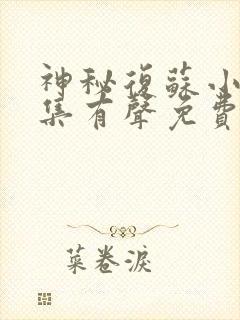 神秘復蘇小
集有聲免費
菜卷淚